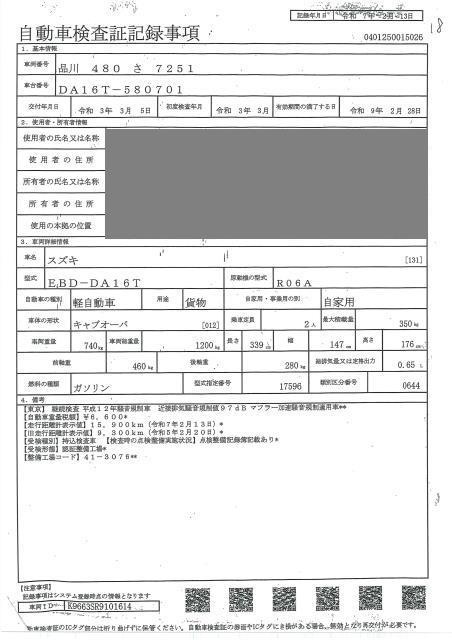 記録年月日 令和 7年 2月 13日
自動車検査証記録事項
0401250015026
18
1. 基本情報
車両番号 品川 480 さ 7251
車台番号 DA16T-580701
交付年月日 令和 3年 3月 5日 初度検査年月 令和 3年 3月 有効期間の満了する日 令和 9年 2月 28日
2. 使用者・所有者情報
使用者の氏名又は名称
使用者の住所
所有者の氏名又は名称
所有者の住所
使用の本拠の位置
3. 車両詳細情報
車名 スズキ [131]
型式 EBD-DA16T 原動機の型式 R06A
自動車の種別 軽自動車 用途 貨物 自家用・事業用の別 自家用
車体の形状 キャブオーバ [012] 乗車定員 2人 最大積載量 350kg
車両重量 740kg 車両総重量 1200kg 長さ 339cm 幅 147cm 高さ 176cm
前軸重 460kg 後軸重 280kg 総排気量又は定格出力 0.65 L
燃料の種類 ガソリン 型式指定番号 17596 類別区分番号 0644
4. 備考
【東京】 継続検査 平成12年騒音規制車 近接排気騒音規制値97dB マフラー加速騒音規制適用車**
【自動車重量税額】¥6,600*
【走行距離計表示値】15,900km（令和7年2月13日）*
【旧走行距離計表示値】9,300km（令和5年2月20日）*
【受検種別】持込検査車 【検査時の点検整備実施状況】点検整備記録簿記載あり*
【受検形態】認証整備工場*
【整備工場コード】41-3076**
【注意事項】
記録事項はシステム登録時点の情報となります
車両ID K9663SR9101614
自動車検査証のICタグ部分は折り曲げずに保管ください。自動車検査証の券面やICタグにき損がある場合、無効となり再交付が必要です。